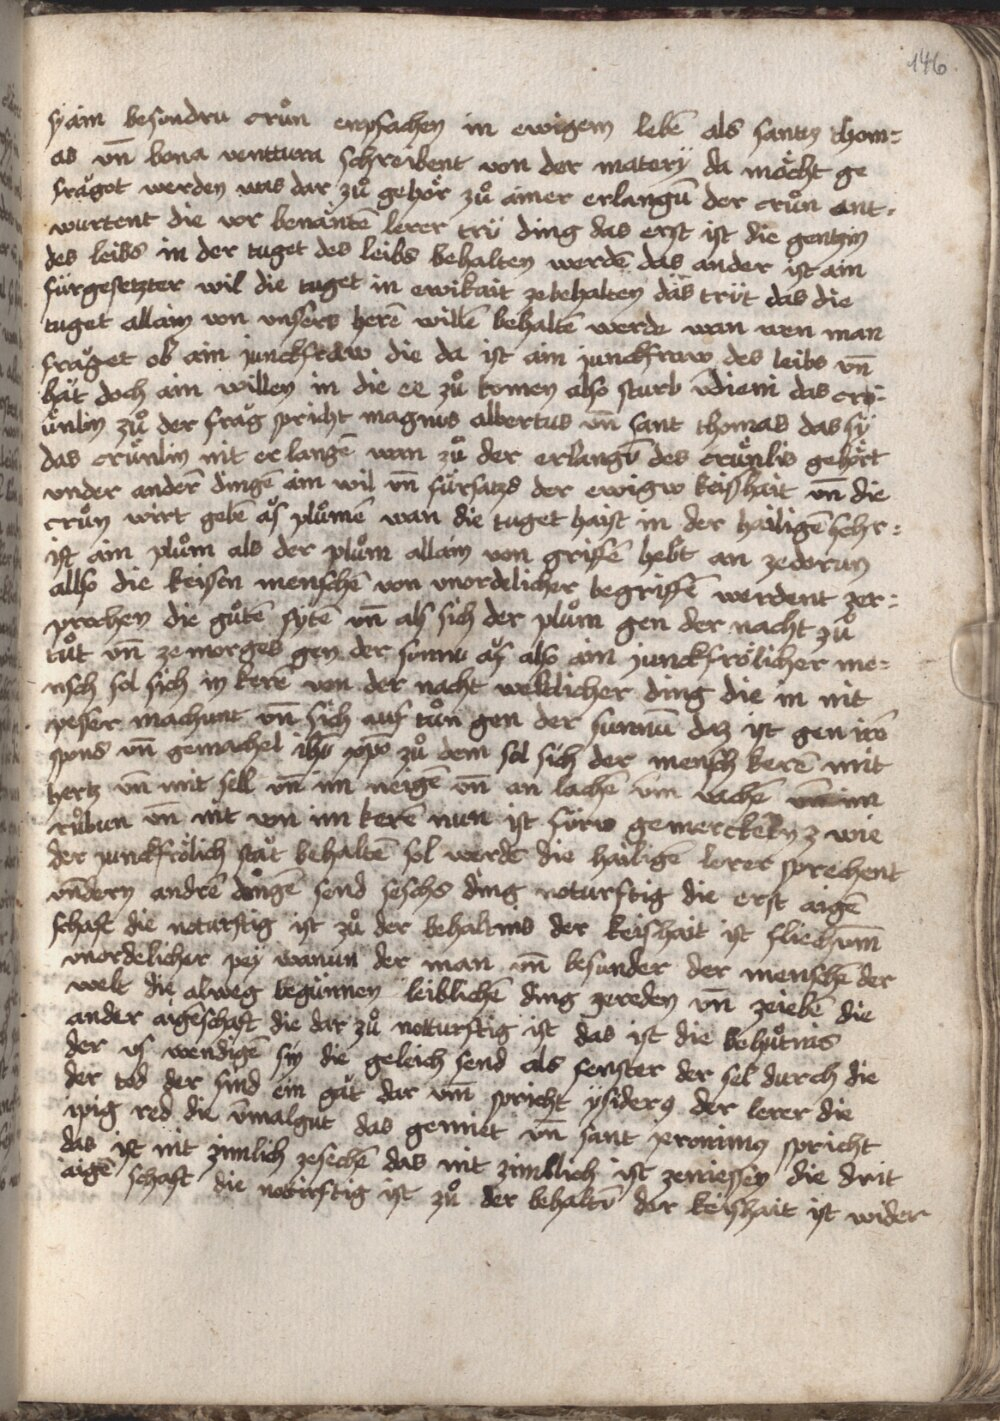 146
sÿ ain besondru crůn enpfachen in ewigem lebē als santtz thom=
as vn̄ bona venttura schreibent von der materÿ da möcht ge
fraͤget werden was dar zů gehör zů ainer erlangū der crůn ant=
wurtent die vor benantē lerer trü ding das erst ist die gentzin
des leibs in der tuget des leibs behalten werdē das ander ist ain
fürgesetzter wil die tuget in ewikait zebehalten däs trüt das die
tuget allain von vnsers herē willē behaltē werde wan wen man
fraͤget ob ain junckfraw die da ist ain junckfraw des leibs vn̄
hät doch ain willen in die ee zů komen also sturb das crö=
ünlin zů der fräg spricht magnus albertus vn̄ sant thomas das sÿ
das crünlin nit erlangē wan zů der erlangū des crünlis gehört
vnder anderē dingē ain wil vn̄ fürsatz der ewigw keishait vn̄ die
crůn wirt gebē aͧs plůmē wan die tuget haist in der hailigē schr=
ift ain plům als der plům allain von griffē hebt an zedorun
allso die keisen menschē von vnordelicher begriffē werdent zer=
prochen die gůtē sytē vn̄ als sich der plům gen der nacht zů
tůt vn̄ ze morges gen der sunnu aͧf also ain junckfrölicher me=
nsch sol sich in kerē von der nacht weltlicher ding die in nit
pesser machunt vn̄ sich auf tůn gen der sunnū daz ist gen irē
spons vn̄ gemachel ihū xp̄o zů dem sol sich der mensch kerē mit
hertz vn̄ mit sell vn̄ im neigē vn̄ an lachē vm̄ vachē im
růbun vn̄ nit von im kerē nun ist fürw gemercken wie
der junckfrölich stät behaltē sol werdē die hailigē lerer sprechent
vn̄dern andrē dingē send sechs ding noturftig die erst aigē
schaft die noturftig ist zů der behaltnis der keishait ist fliechūm
vnordelicher peÿ wanūn der man vn̄ besunder der menschē der
welt die alweg begünnen leiblichē ding zereden vn̄ zeiebē die
ander aigēschaft die dar zů notturftig ist das ist die behütnis
der vswendigē sin die geleich send als fenster der sel durch die
der tod der sünd ein gät dar vm̄ spricht ysiderꝰ der lerer die
ipig red die vmalgut das gemiet vn̄ sant jeronimꝰ spricht
das ist nit zimlich zesechē das nit zimlich ist zeniessen die drit
aigē schaft die noturftig ist zů der behaltū der keishait ist wider